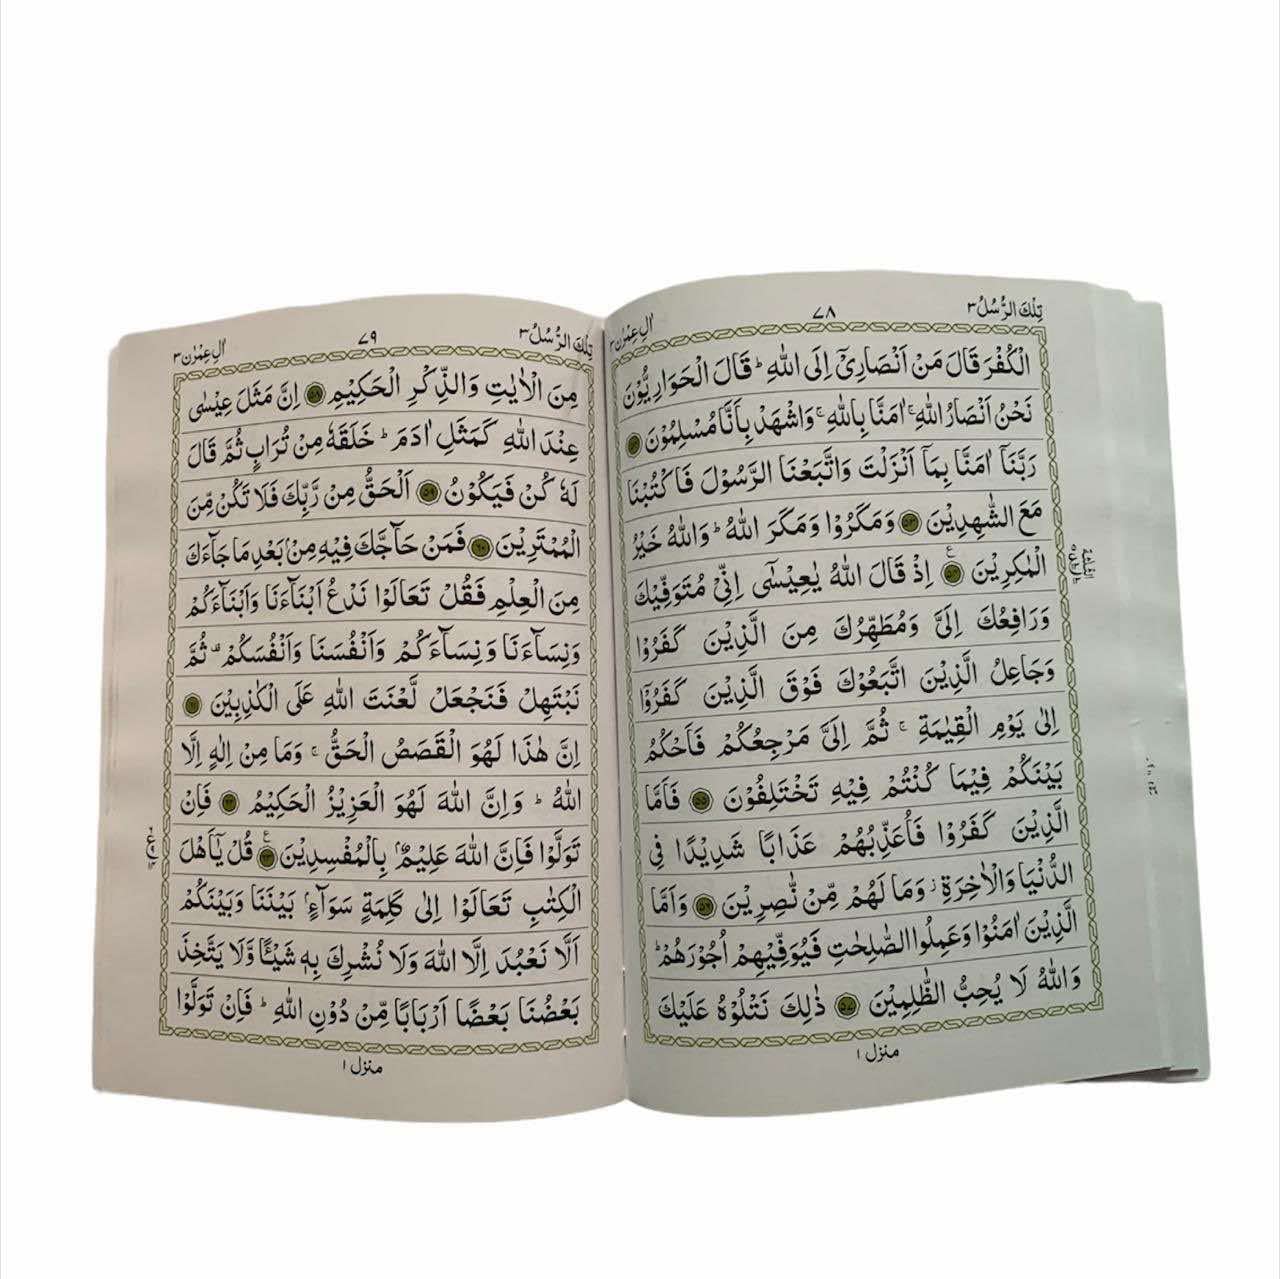 تِلْكَ الرُّسُلُ ٣
٧٨
اٰلِ عِمْرٰن ٣
الْكُفْرَ قَالَ مَنْ اَنْصَارِیْۤ اِلَی اللّٰهِ ؕ قَالَ الْحَوَارِیُّوْنَ
نَحْنُ اَنْصَارُ اللّٰهِ ۚ اٰمَنَّا بِاللّٰهِ ۚ وَاشْهَدْ بِاَنَّا مُسْلِمُوْنَ ﴿۵۲﴾
رَبَّنَاۤ اٰمَنَّا بِمَاۤ اَنْزَلْتَ وَاتَّبَعْنَا الرَّسُوْلَ فَاكْتُبْنَا
مَعَ الشّٰهِدِیْنَ ﴿۵۳﴾ وَمَكَرُوْا وَمَكَرَ اللّٰهُ ؕ وَاللّٰهُ خَیْرُ
الْمٰكِرِیْنَ ﴿۵۴﴾ اِذْ قَالَ اللّٰهُ یٰعِیْسٰۤی اِنِّیْ مُتَوَفِّیْكَ
وَرَافِعُكَ اِلَیَّ وَمُطَهِّرُكَ مِنَ الَّذِیْنَ كَفَرُوْا
وَجَاعِلُ الَّذِیْنَ اتَّبَعُوْكَ فَوْقَ الَّذِیْنَ كَفَرُوْۤا
اِلٰی یَوْمِ الْقِیٰمَةِ ۚ ثُمَّ اِلَیَّ مَرْجِعُكُمْ فَاَحْكُمُ
بَیْنَكُمْ فِیْمَا كُنْتُمْ فِیْهِ تَخْتَلِفُوْنَ ﴿۵۵﴾ فَاَمَّا
الَّذِیْنَ كَفَرُوْا فَاُعَذِّبُهُمْ عَذَابًا شَدِیْدًا فِی
الدُّنْیَا وَالْاٰخِرَةِ ؗ وَمَا لَهُمْ مِّنْ نّٰصِرِیْنَ ﴿۵۶﴾ وَاَمَّا
الَّذِیْنَ اٰمَنُوْا وَعَمِلُوا الصّٰلِحٰتِ فَیُوَفِّیْهِمْ اُجُوْرَهُمْ ؕ
وَاللّٰهُ لَا یُحِبُّ الظّٰلِمِیْنَ ﴿۵۷﴾ ذٰلِكَ نَتْلُوْهُ عَلَیْكَ
منزل ١
تِلْكَ الرُّسُلُ ٣
٧٩
اٰلِ عِمْرٰن ٣
مِنَ الْاٰیٰتِ وَالذِّكْرِ الْحَكِیْمِ ﴿۵۸﴾ اِنَّ مَثَلَ عِیْسٰی
عِنْدَ اللّٰهِ كَمَثَلِ اٰدَمَ ؕ خَلَقَهٗ مِنْ تُرَابٍ ثُمَّ قَالَ
لَهٗ كُنْ فَیَكُوْنُ ﴿۵۹﴾ اَلْحَقُّ مِنْ رَّبِّكَ فَلَا تَكُنْ مِّنَ
الْمُمْتَرِیْنَ ﴿۶۰﴾ فَمَنْ حَآجَّكَ فِیْهِ مِنْۢ بَعْدِ مَا جَآءَكَ
مِنَ الْعِلْمِ فَقُلْ تَعَالَوْا نَدْعُ اَبْنَآءَنَا وَاَبْنَآءَكُمْ
وَنِسَآءَنَا وَنِسَآءَكُمْ وَاَنْفُسَنَا وَاَنْفُسَكُمْ ۫ ثُمَّ
نَبْتَهِلْ فَنَجْعَلْ لَّعْنَتَ اللّٰهِ عَلَی الْكٰذِبِیْنَ ﴿۶۱﴾
اِنَّ هٰذَا لَهُوَ الْقَصَصُ الْحَقُّ ۚ وَمَا مِنْ اِلٰهٍ اِلَّا
اللّٰهُ ؕ وَاِنَّ اللّٰهَ لَهُوَ الْعَزِیْزُ الْحَكِیْمُ ﴿۶۲﴾ فَاِنْ
تَوَلَّوْا فَاِنَّ اللّٰهَ عَلِیْمٌۢ بِالْمُفْسِدِیْنَ ﴿۶۳﴾ قُلْ یٰۤاَهْلَ
الْكِتٰبِ تَعَالَوْا اِلٰی كَلِمَةٍ سَوَآءٍۭ بَیْنَنَا وَبَیْنَكُمْ
اَلَّا نَعْبُدَ اِلَّا اللّٰهَ وَلَا نُشْرِكَ بِهٖ شَیْـًٔا وَّلَا یَتَّخِذَ
بَعْضُنَا بَعْضًا اَرْبَابًا مِّنْ دُوْنِ اللّٰهِ ؕ فَاِنْ تَوَلَّوْا
منزل ١